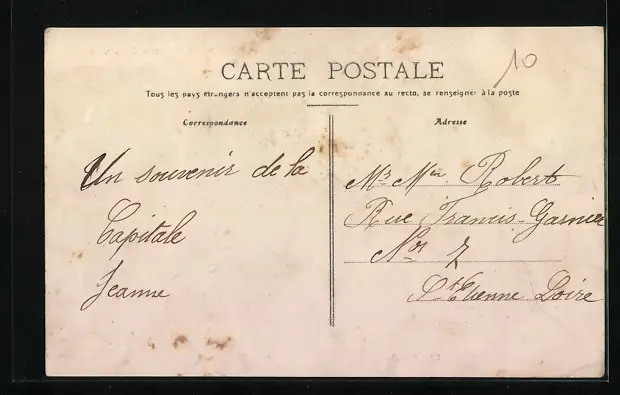 10
CARTE POSTALE
Tous les pays étrangers n'acceptent pas la correspondance au recto, se renseigner à la poste
Correspondance
Adresse
Un souvenir de la
Capitale
Jeanne
Mr Robert
Rue Francis Garnier
No 7
St Etienne Loire